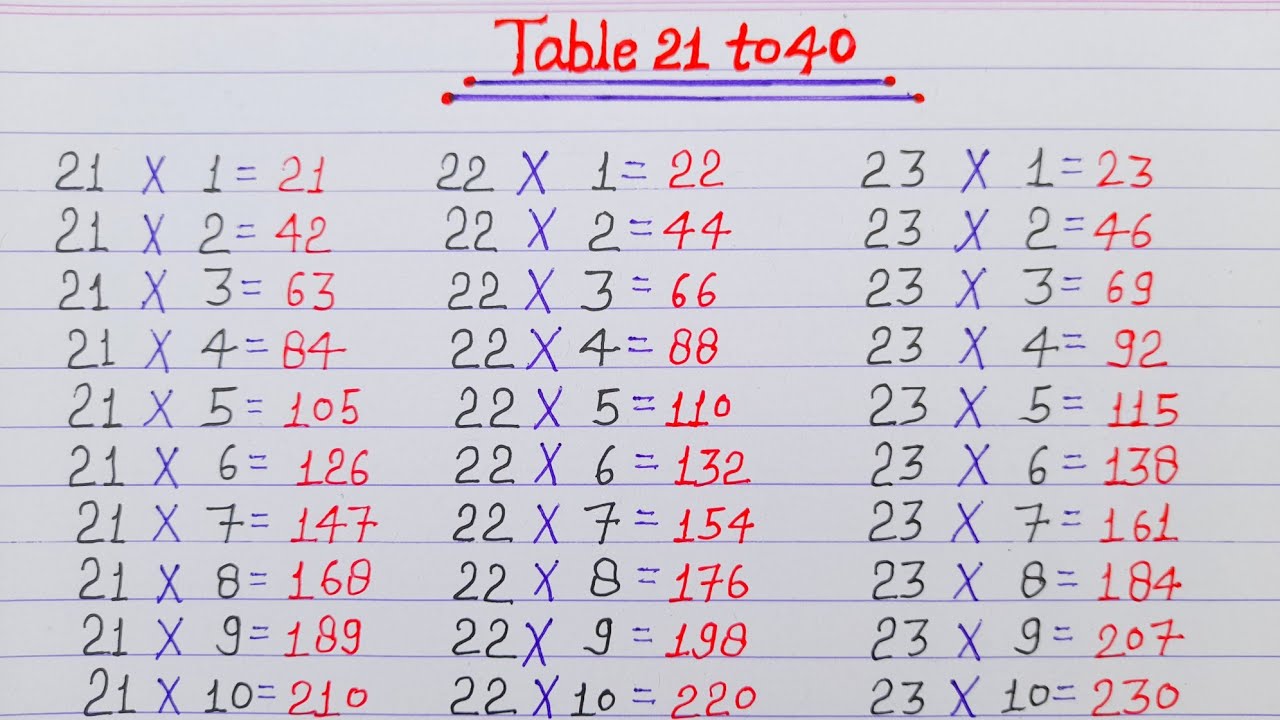 Table 21 to 40
21 X 1 = 21 22 X 1 = 22 23 X 1 = 23
21 X 2 = 42 22 X 2 = 44 23 X 2 = 46
21 X 3 = 63 22 X 3 = 66 23 X 3 = 69
21 X 4 = 84 22 X 4 = 88 23 X 4 = 92
21 X 5 = 105 22 X 5 = 110 23 X 5 = 115
21 X 6 = 126 22 X 6 = 132 23 X 6 = 138
21 X 7 = 147 22 X 7 = 154 23 X 7 = 161
21 X 8 = 168 22 X 8 = 176 23 X 8 = 184
21 X 9 = 189 22 X 9 = 198 23 X 9 = 207
21 X 10 = 210 22 X 10 = 220 23 X 10 = 230